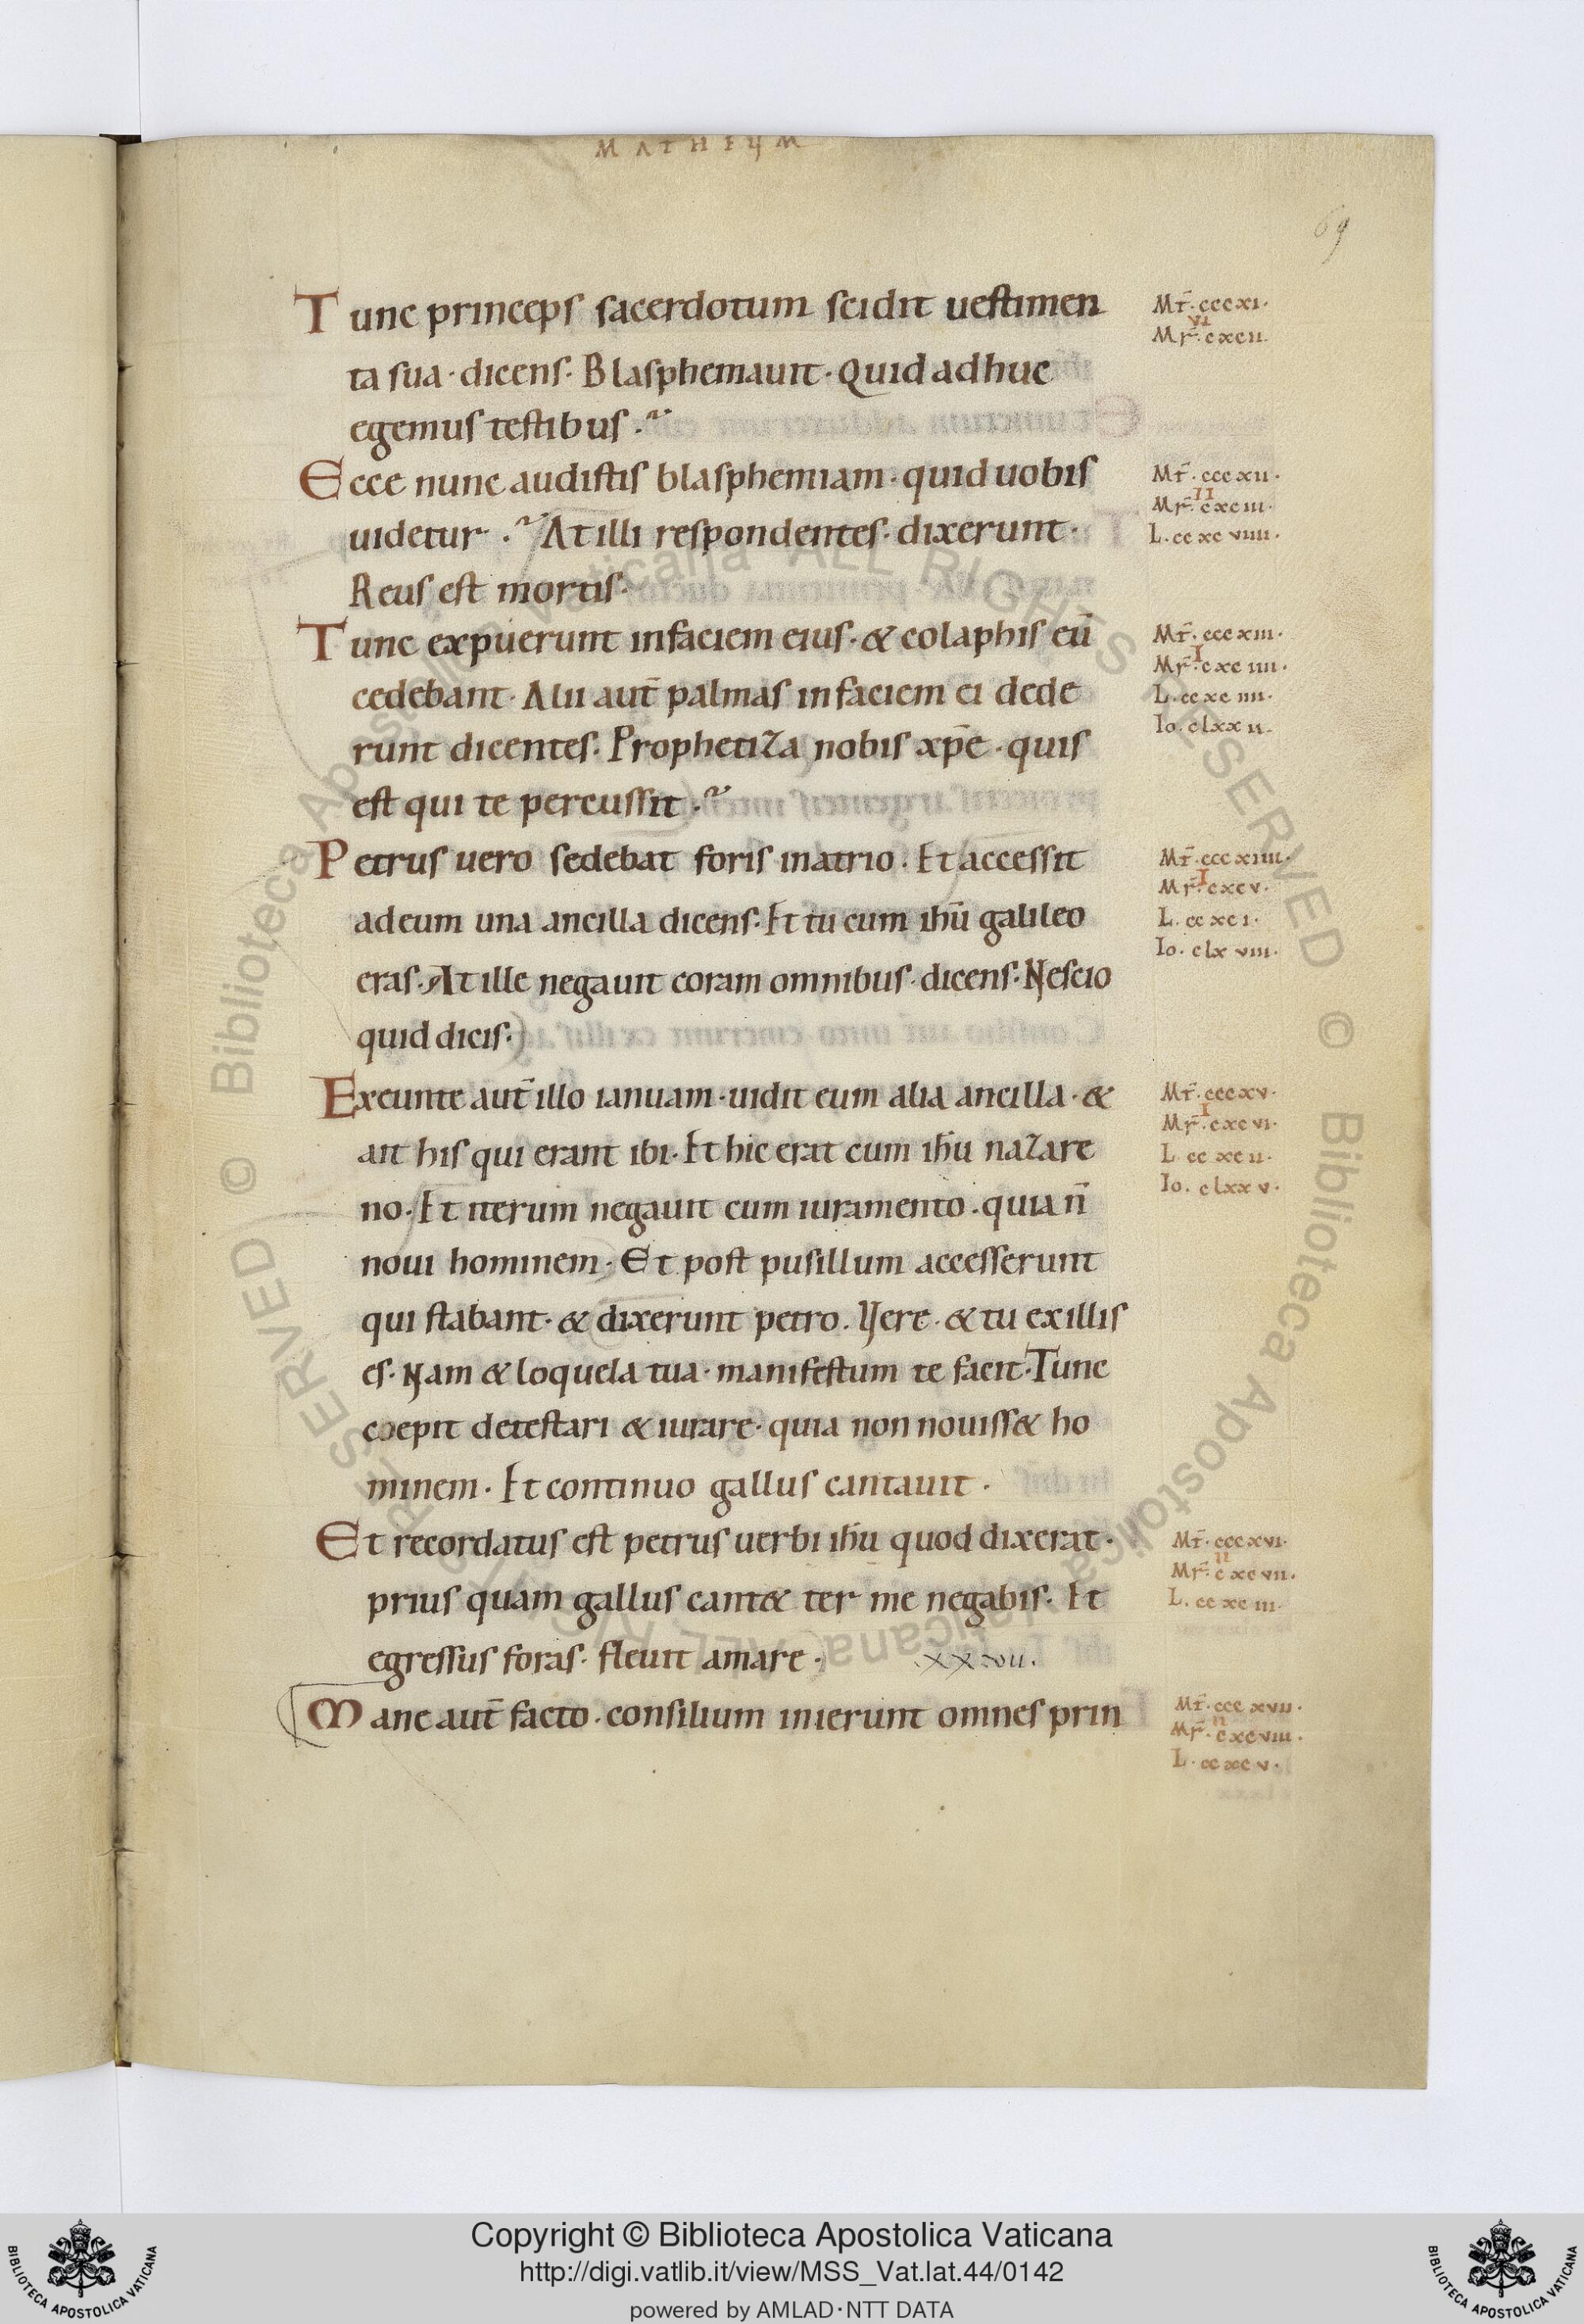 MATHEUM
69
Tunc princeps sacerdotum scidit uestimen
ta sua · dicens · Blasphemauit · Quid adhuc
egemus testibus ·
Ecce nunc audistis blasphemiam · quid uobis
uidetur · At illi respondentes · dixerunt ·
Reus est mortis ·
Tunc expuerunt in faciem eius · & colaphis eū
cedebant · Alii aut̄ palmas in faciem ei dede
runt dicentes · Prophetiza nobis xp̄e · quis
est qui te percussit ·
Petrus uero sedebat foris in atrio · Et accessit
ad eum una ancilla dicens · Et tu cum ihū galileo
eras · At ille negauit coram omnibus · dicens · Nescio
quid dicis ·
Exeunte aut̄ illo ianuam · uidit eum alia ancilla · &
ait his qui erant ibi · Et hic erat cum ihū nazare
no · Et iterum negauit cum iuramento · quia n̄
noui hominem · Et post pusillum accesserunt
qui stabant · & dixerunt petro · Vere · & tu ex illis
es · Nam & loquela tua · manifestum te facit · Tunc
coepit detestari & iurare · quia non nouiss& ho
minem · Et continuo gallus cantauit ·
Et recordatus est petrus uerbi ihū quod dixerat ·
prius quam gallus cant& ter me negabis · Et
egressus foras · fleuit amare ·
Mane aut̄ facto · consilium inierunt omnes prin
Mt̄ · cccxi ·
VI
Mr̄ · cxcii
Mt̄ · cccxii ·
II
Mr̄ · cxciii ·
L · ccxcviiii ·
Mt̄ · cccxiii ·
I
Mr̄ · cxciiii ·
L · ccxciiii ·
Io · clxxii ·
Mt̄ · cccxiiii ·
I
Mr̄ · cxcv ·
L · ccxci ·
Io · clxviii ·
Mt̄ · cccxv ·
I
Mr̄ · cxcvi ·
L · ccxcii ·
Io · clxxv ·
Mt̄ · cccxvi ·
II
Mr̄ · cxcvii ·
L · ccxciii ·
Mt̄ · cccxvii ·
II
Mr̄ · cxcviii ·
L · ccxcv ·
© Biblioteca Apostolica Vaticana ALL RIGHTS RESERVED © Biblioteca Apostolica Vaticana ALL RIGHTS RESERVED
Copyright © Biblioteca Apostolica Vaticana
http://digi.vatlib.it/view/MSS_Vat.lat.44/0142
powered by AMLAD·NTT DATA
BIBLIOTECA APOSTOLICA VATICANA
BIBLIOTECA APOSTOLICA VATICANA